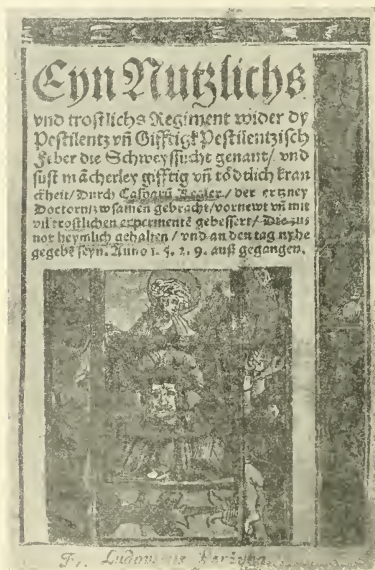 Eyn Nutzlichs
vnd trostlichs Regiment wider dy
Pestilentz vñ Gifftigk Pestilentzisch
Feber die Schweyssucht genant / vnd
sust mãcherley gifftig vñ tödtlich kran
ckheit / Durch Casparũ Kegler / der ertzney
Doctorn zwsamen gebracht / vornewt vñ mit
vil trostlichen expermentẽ gebessert / Die zu
nor heymlich gehalten / vnd an den tag nyhe
gegebẽ seyn. Anno 1. 5. 2. 9. auß gegangen.
F. Ludovicus